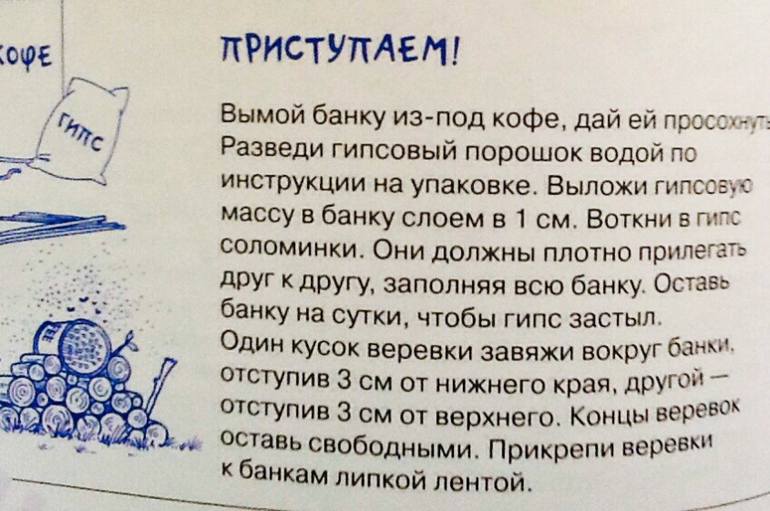 КОФЕ
ГИПС
ПРИСТУПАЕМ!
Вымой банку из-под кофе, дай ей просохнуть.
Разведи гипсовый порошок водой по
инструкции на упаковке. Выложи гипсовую
массу в банку слоем в 1 см. Воткни в гипс
соломинки. Они должны плотно прилегать
друг к другу, заполняя всю банку. Оставь
банку на сутки, чтобы гипс застыл.
Один кусок веревки завяжи вокруг банки,
отступив 3 см от нижнего края, другой —
отступив 3 см от верхнего. Концы веревок
оставь свободными. Прикрепи веревки
к банкам липкой лентой.